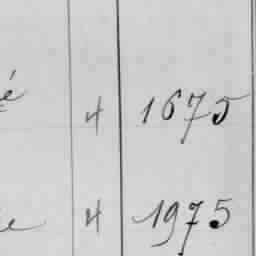 é 4 1675
e 4 1975